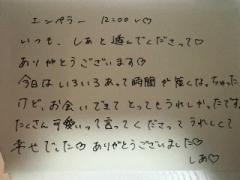 エンペラー 12:00~♡
いつも、しあと遊んでくださって♡
ありがとうございます♡
今日はいろいろあって時間が短くなっちゃった
けど、お会いできてとってもうれしかったです。
たくさん可愛いって言ってくださってうれしくて
幸せでした♡ ありがとうございました♡
しあ♡